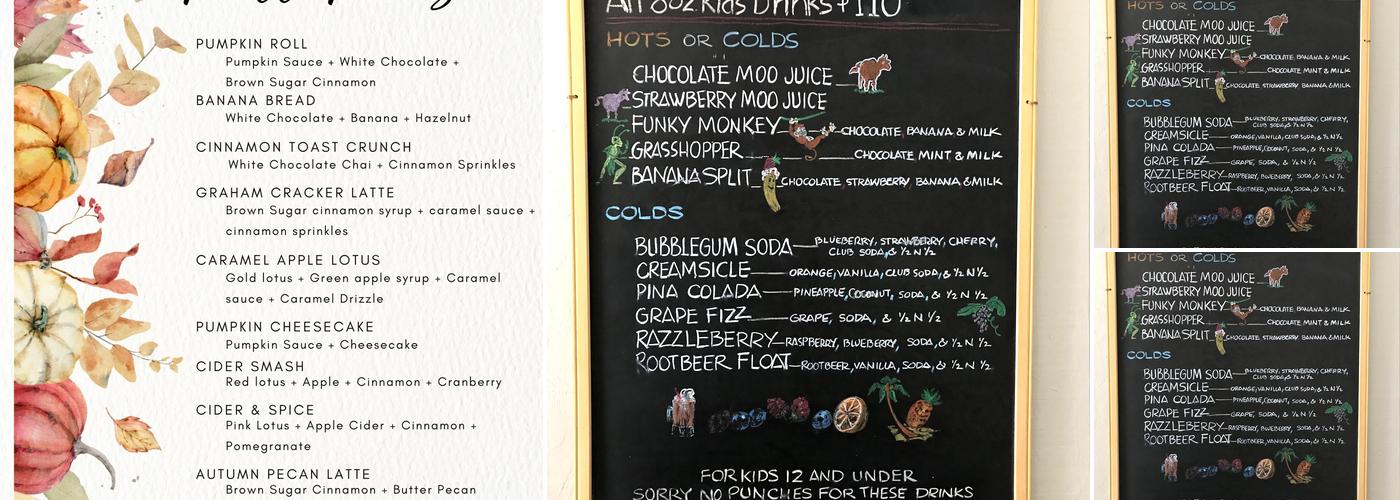 PUMPKIN ROLL
Pumpkin Sauce + White Chocolate +
Brown Sugar Cinnamon
BANANA BREAD
White Chocolate + Banana + Hazelnut
CINNAMON TOAST CRUNCH
White Chocolate Chai + Cinnamon Sprinkles
GRAHAM CRACKER LATTE
Brown Sugar cinnamon syrup + caramel sauce +
cinnamon sprinkles
CARAMEL APPLE LOTUS
Gold lotus + Green apple syrup + Caramel
sauce + Caramel Drizzle
PUMPKIN CHEESECAKE
Pumpkin Sauce + Cheesecake
CIDER SMASH
Red lotus + Apple + Cinnamon + Cranberry
CIDER & SPICE
Pink Lotus + Apple Cider + Cinnamon +
Pomegranate
AUTUMN PECAN LATTE
Brown Sugar Cinnamon + Butter Pecan
All 8oz Kids Drinks
HOTS OR COLDS
CHOCOLATE MOO JUICE
STRAWBERRY MOO JUICE
FUNKY MONKEY CHOCOLATE, BANANA & MILK
GRASSHOPPER CHOCOLATE MINT & MILK
BANANA SPLIT CHOCOLATE, STRAWBERRY, BANANA & MILK
COLDS
BUBBLEGUM SODA BLUEBERRY, STRAWBERRY, CHERRY,
CLUB SODA, & ½ N ½
CREAMSICLE ORANGE, VANILLA, CLUB SODA, & ½ N ½
PINA COLADA PINEAPPLE, COCONUT, SODA, & ½ N ½
GRAPE FIZZ GRAPE, SODA, & ½ N ½
RAZZLEBERRY RASPBERRY, BLUEBERRY, SODA, & ½ N ½
ROOTBEER FLOAT ROOTBEER, VANILLA, SODA, & ½ N ½
FOR KIDS 12 AND UNDER
SORRY NO PUNCHES FOR THESE DRINKS
HOTS OR COLDS
CHOCOLATE MOO JUICE
STRAWBERRY MOO JUICE
FUNKY MONKEY CHOCOLATE, BANANA & MILK
GRASSHOPPER CHOCOLATE MINT & MILK
BANANA SPLIT CHOCOLATE, STRAWBERRY, BANANA & MILK
COLDS
BUBBLEGUM SODA BLUEBERRY, STRAWBERRY, CHERRY,
CLUB SODA, & ½ N ½
CREAMSICLE ORANGE, VANILLA, CLUB SODA, & ½ N ½
PINA COLADA PINEAPPLE, COCONUT, SODA, & ½ N ½
GRAPE FIZZ GRAPE, SODA, & ½ N ½
RAZZLEBERRY RASPBERRY, BLUEBERRY, SODA, & ½ N ½
ROOTBEER FLOAT ROOTBEER, VANILLA, SODA, & ½ N ½
HOTS OR COLDS
CHOCOLATE MOO JUICE
STRAWBERRY MOO JUICE
FUNKY MONKEY CHOCOLATE, BANANA & MILK
GRASSHOPPER CHOCOLATE MINT & MILK
BANANA SPLIT CHOCOLATE, STRAWBERRY, BANANA & MILK
COLDS
BUBBLEGUM SODA BLUEBERRY, STRAWBERRY, CHERRY,
CLUB SODA, & ½ N ½
CREAMSICLE ORANGE, VANILLA, CLUB SODA, & ½ N ½
PINA COLADA PINEAPPLE, COCONUT, SODA, & ½ N ½
GRAPE FIZZ GRAPE, SODA, & ½ N ½
RAZZLEBERRY RASPBERRY, BLUEBERRY, SODA, & ½ N ½
ROOTBEER FLOAT ROOTBEER, VANILLA, SODA, & ½ N ½